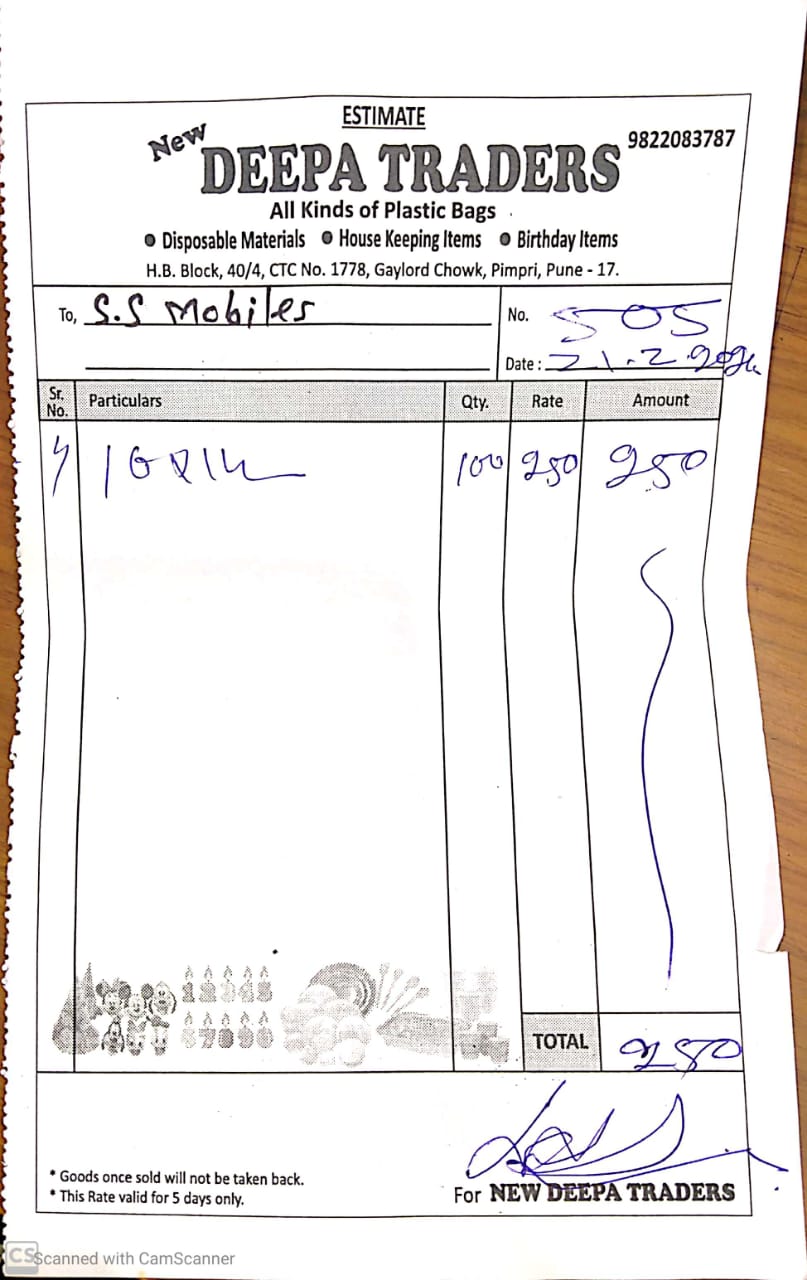 ESTIMATE
New
DEEPA TRADERS
9822083787
All Kinds of Plastic Bags
Disposable Materials House Keeping Items Birthday Items
H.B. Block, 40/4, CTC No. 1778, Gaylord Chowk, Pimpri, Pune - 17.
To, S.S Mobiles
No. 505
Date : 21.2.2024
Sr. No. Particulars Qty. Rate Amount
100 250 250
TOTAL 250
* Goods once sold will not be taken back.
* This Rate valid for 5 days only.
For NEW DEEPA TRADERS
CS Scanned with CamScanner